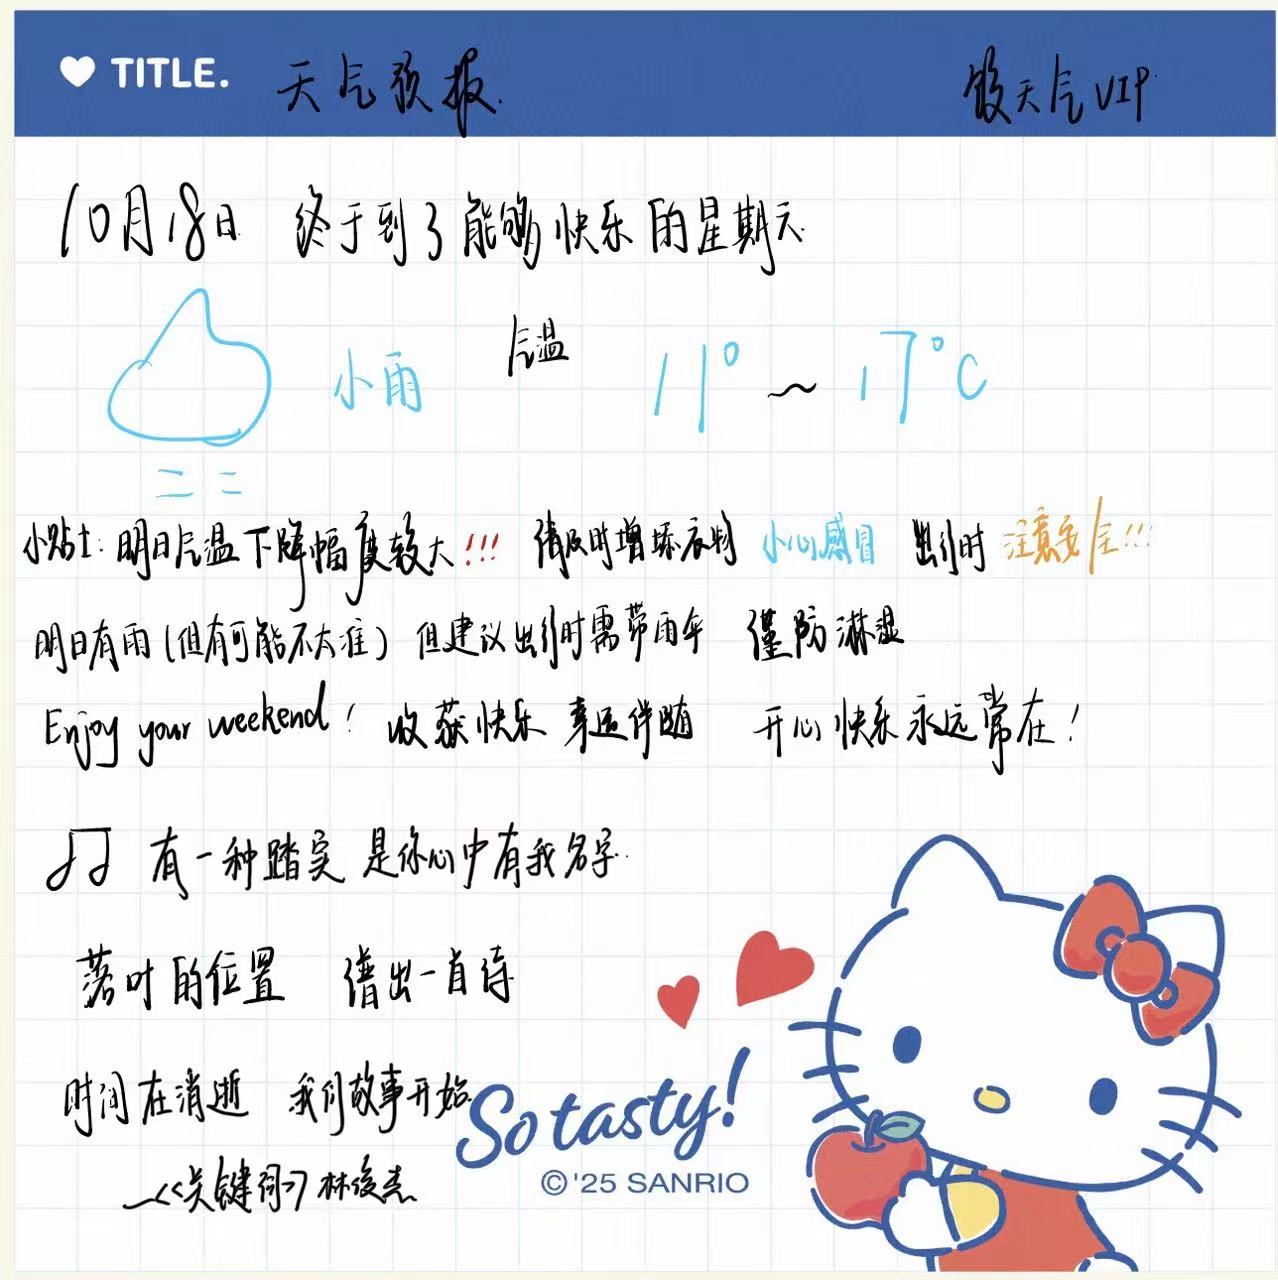 TITLE. 天气预报 天气VIP
10月18日 终于到了能够快乐的星期天
小雨 气温 11° ~ 17°C
小贴士: 明日气温下降幅度较大!!! 请及时增添衣物 小心感冒 出行时 注意安全!!!
明日有雨(但有可能不太准) 但建议出行时需带雨伞 谨防淋湿
Enjoy your weekend! 收获快乐 幸运伴随 开心快乐永远常在!
有一种踏实 是你心中有我名字
落叶的位置 谱出一首诗
时间在消逝 我们故事开始
—《关键词》林俊杰
So tasty!
©'25 SANRIO